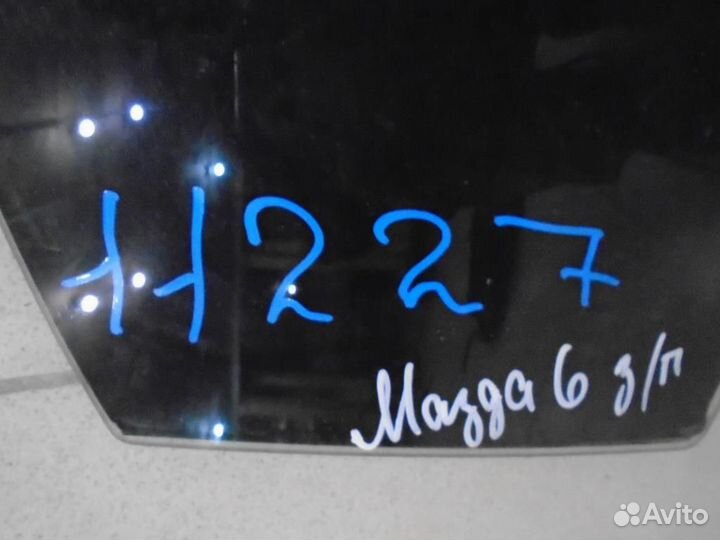 11227
Мазда 6 з/п
Avito